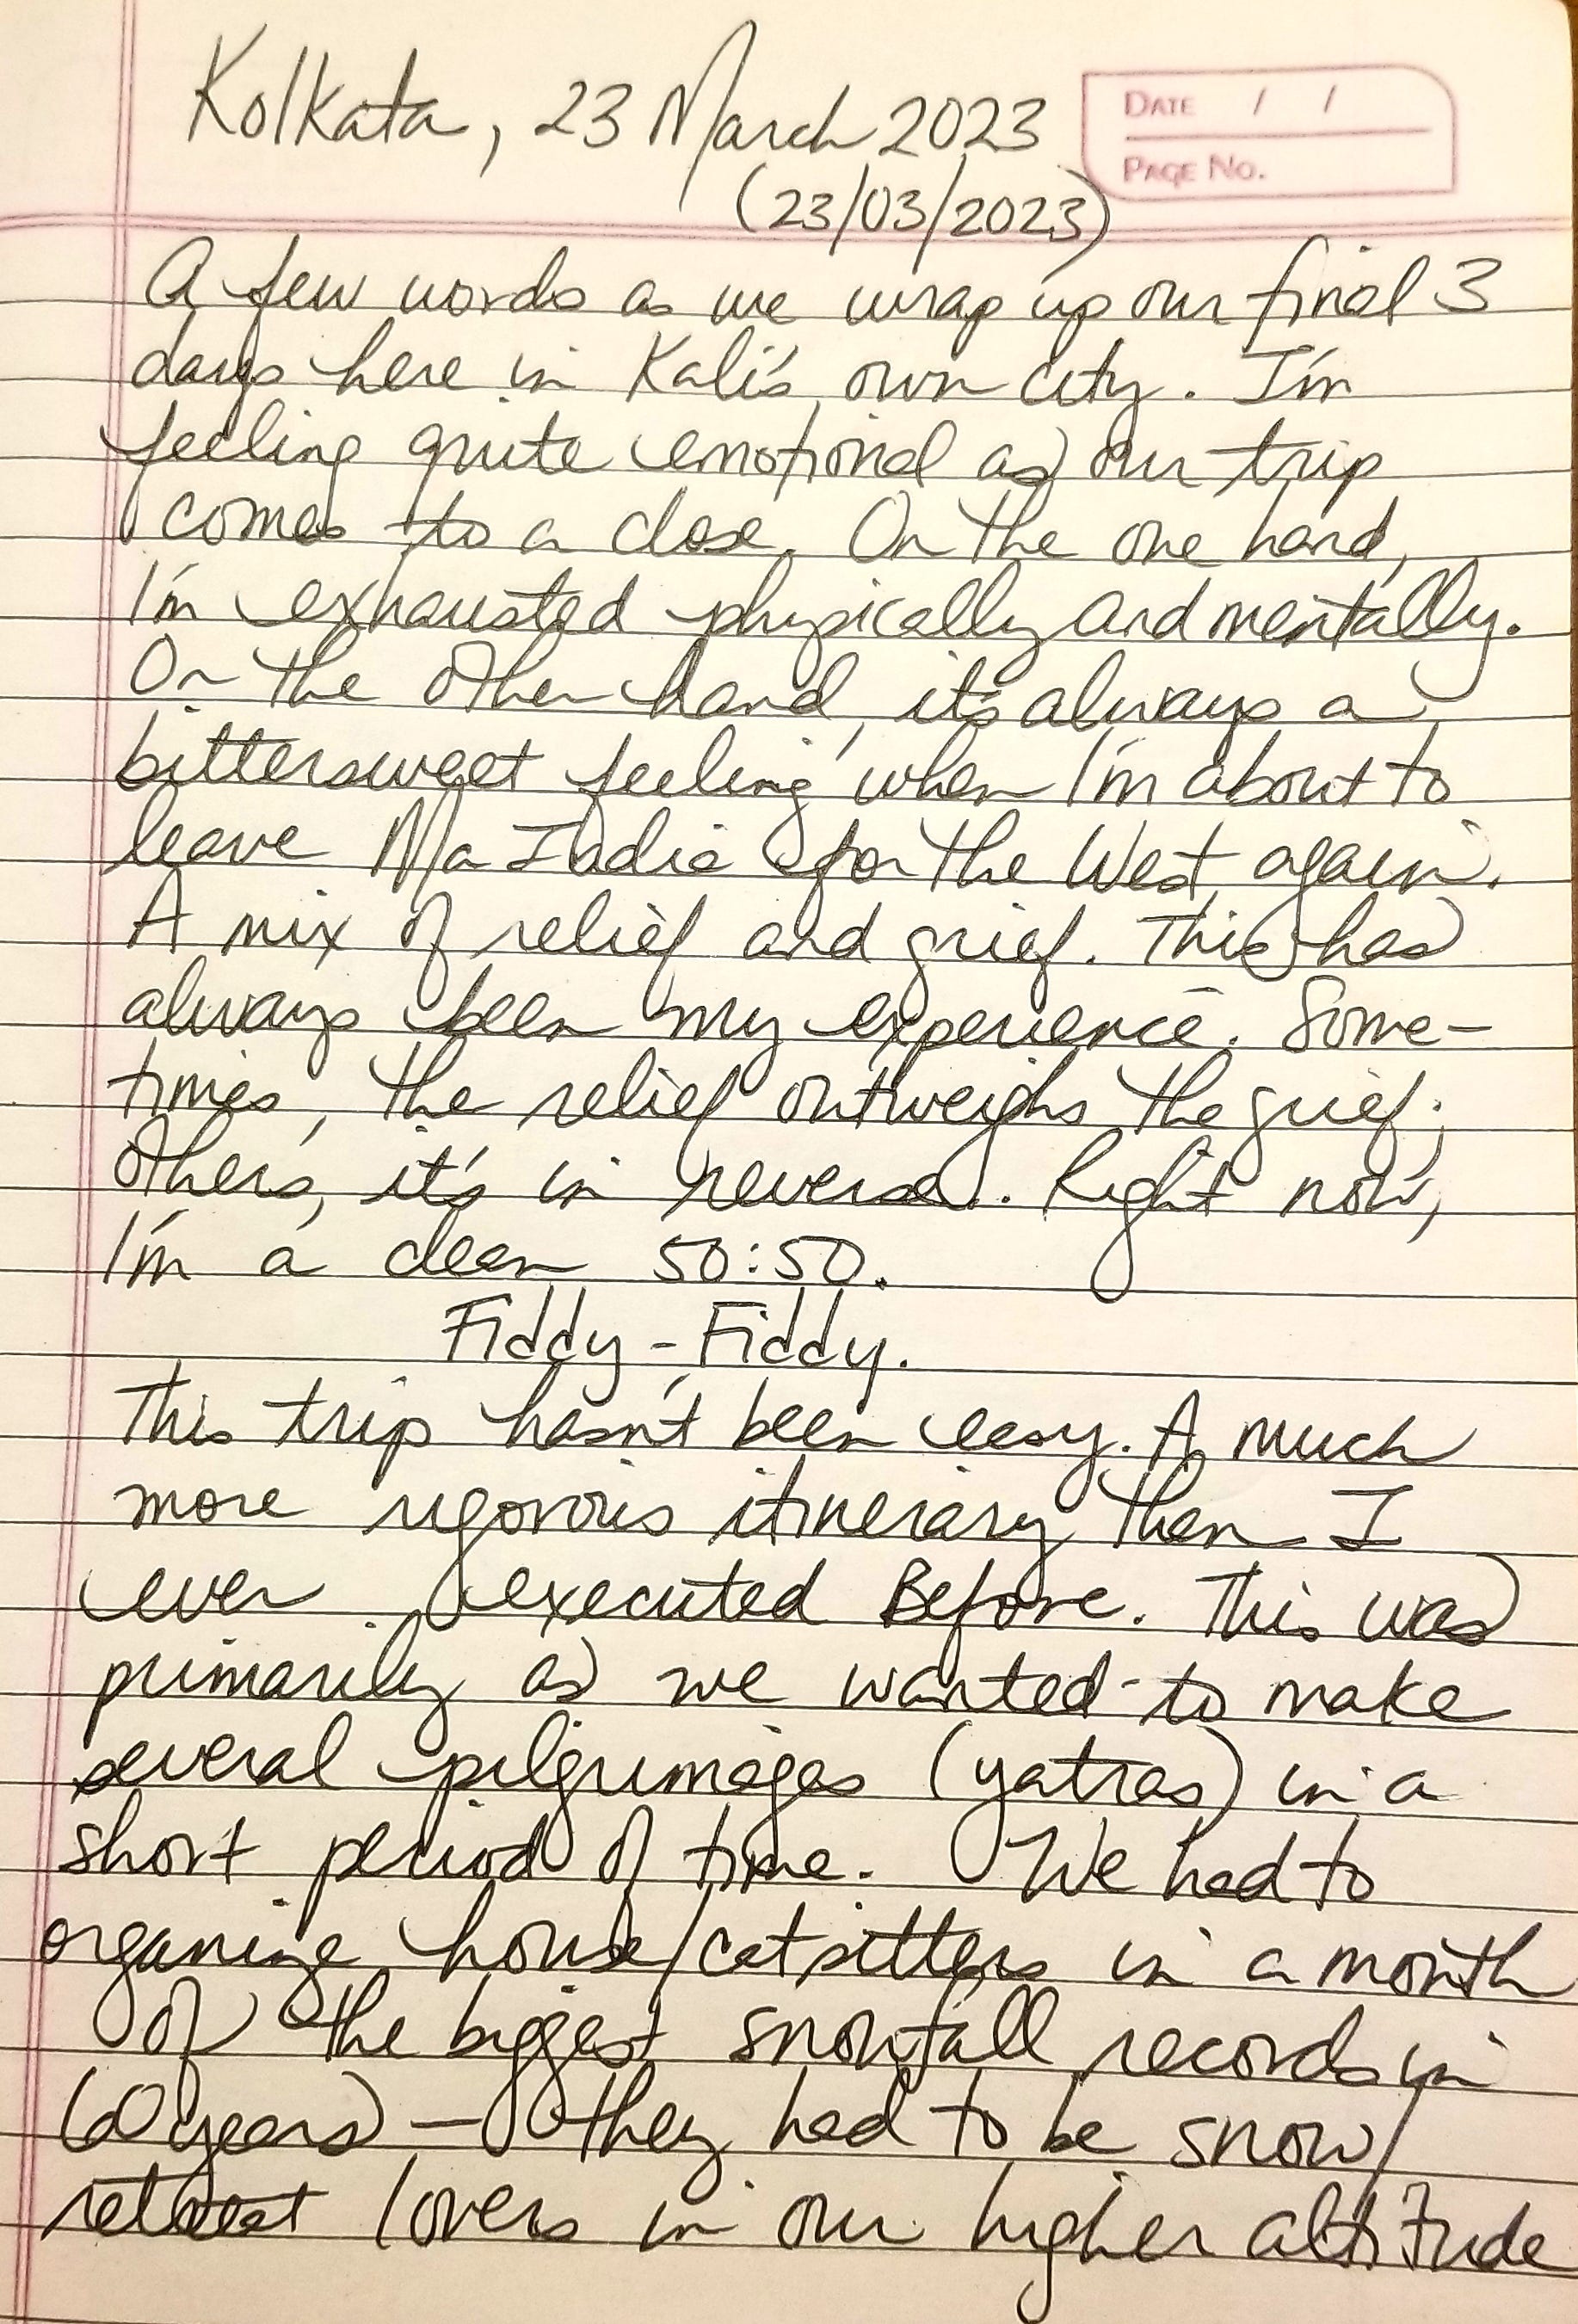 Kolkata, 23 March 2023
DATE / /
PAGE NO.
(23/03/2023)
A few words as we wrap up our final 3
days here in Kali's own city. I'm
feeling quite emotional as our trip
comes to a close. On the one hand,
I'm exhausted physically and mentally.
On the other hand, it's always a
bittersweet feeling when I'm about to
leave Ma India for the West again.
A mix of relief and grief. This has
always been my experience. Some-
times, the relief outweighs the grief;
others, it's in reverse. Right now,
I'm a clean 50:50.
Fiddy-Fiddy.
This trip hasn't been easy. A much
more rigorous itinerary than I
ever executed Before. This was
primarily as we wanted to make
several pilgrimages (yatras) in a
short period of time. We had to
organize house/catsitters in a month
of the biggest snowfall records in
60 years) — they had to be snow/
retreat lovers in our higher altitude